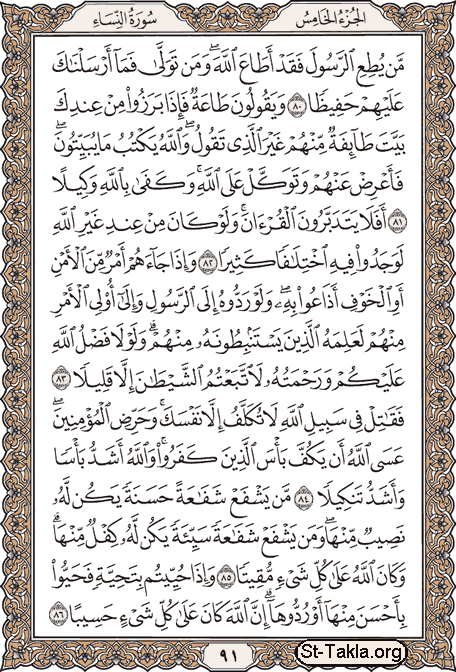 الجُزْءُ الخَامِسُ
سُورَةُ النِّسَاءِ
مَّن يُطِعِ ٱلرَّسُولَ فَقَدْ أَطَاعَ ٱللَّهَ ۖ وَمَن تَوَلَّىٰ فَمَآ أَرْسَلْنَٰكَ
عَلَيْهِمْ حَفِيظًا ٨٠ وَيَقُولُونَ طَاعَةٌ فَإِذَا بَرَزُوا۟ مِنْ عِندِكَ
بَيَّتَ طَآئِفَةٌ مِّنْهُمْ غَيْرَ ٱلَّذِى تَقُولُ ۖ وَٱللَّهُ يَكْتُبُ مَا يُبَيِّتُونَ ۖ
فَأَعْرِضْ عَنْهُمْ وَتَوَكَّلْ عَلَى ٱللَّهِ ۚ وَكَفَىٰ بِٱللَّهِ وَكِيلًا
٨١ أَفَلَا يَتَدَبَّرُونَ ٱلْقُرْءَانَ ۚ وَلَوْ كَانَ مِنْ عِندِ غَيْرِ ٱللَّهِ
لَوَجَدُوا۟ فِيهِ ٱخْتِلَٰفًا كَثِيرًا ٨٢ وَإِذَا جَآءَهُمْ أَمْرٌ مِّنَ ٱلْأَمْنِ
أَوِ ٱلْخَوْفِ أَذَاعُوا۟ بِهِۦ ۖ وَلَوْ رَدُّوهُ إِلَى ٱلرَّسُولِ وَإِلَىٰٓ أُو۟لِى ٱلْأَمْرِ
مِنْهُمْ لَعَلِمَهُ ٱلَّذِينَ يَسْتَنۢبِطُونَهُۥ مِنْهُمْ ۗ وَلَوْلَا فَضْلُ ٱللَّهِ
عَلَيْكُمْ وَرَحْمَتُهُۥ لَٱتَّبَعْتُمُ ٱلشَّيْطَٰنَ إِلَّا قَلِيلًا ٨٣
فَقَٰتِلْ فِى سَبِيلِ ٱللَّهِ لَا تُكَلَّفُ إِلَّا نَفْسَكَ ۚ وَحَرِّضِ ٱلْمُؤْمِنِينَ ۖ
عَسَى ٱللَّهُ أَن يَكُفَّ بَأْسَ ٱلَّذِينَ كَفَرُوا۟ ۚ وَٱللَّهُ أَشَدُّ بَأْسًا
وَأَشَدُّ تَنكِيلًا ٨٤ مَّن يَشْفَعْ شَفَٰعَةً حَسَنَةً يَكُن لَّهُۥ
نَصِيبٌ مِّنْهَا ۖ وَمَن يَشْفَعْ شَفَٰعَةً سَيِّئَةً يَكُن لَّهُۥ كِفْلٌ مِّنْهَا ۗ
وَكَانَ ٱللَّهُ عَلَىٰ كُلِّ شَىْءٍ مُّقِيتًا ٨٥ وَإِذَا حُيِّيتُم بِتَحِيَّةٍ فَحَيُّوا۟
بِأَحْسَنَ مِنْهَآ أَوْ رُدُّوهَآ ۗ إِنَّ ٱللَّهَ كَانَ عَلَىٰ كُلِّ شَىْءٍ حَسِيبًا ٨٦
٩١
St-Takla.org